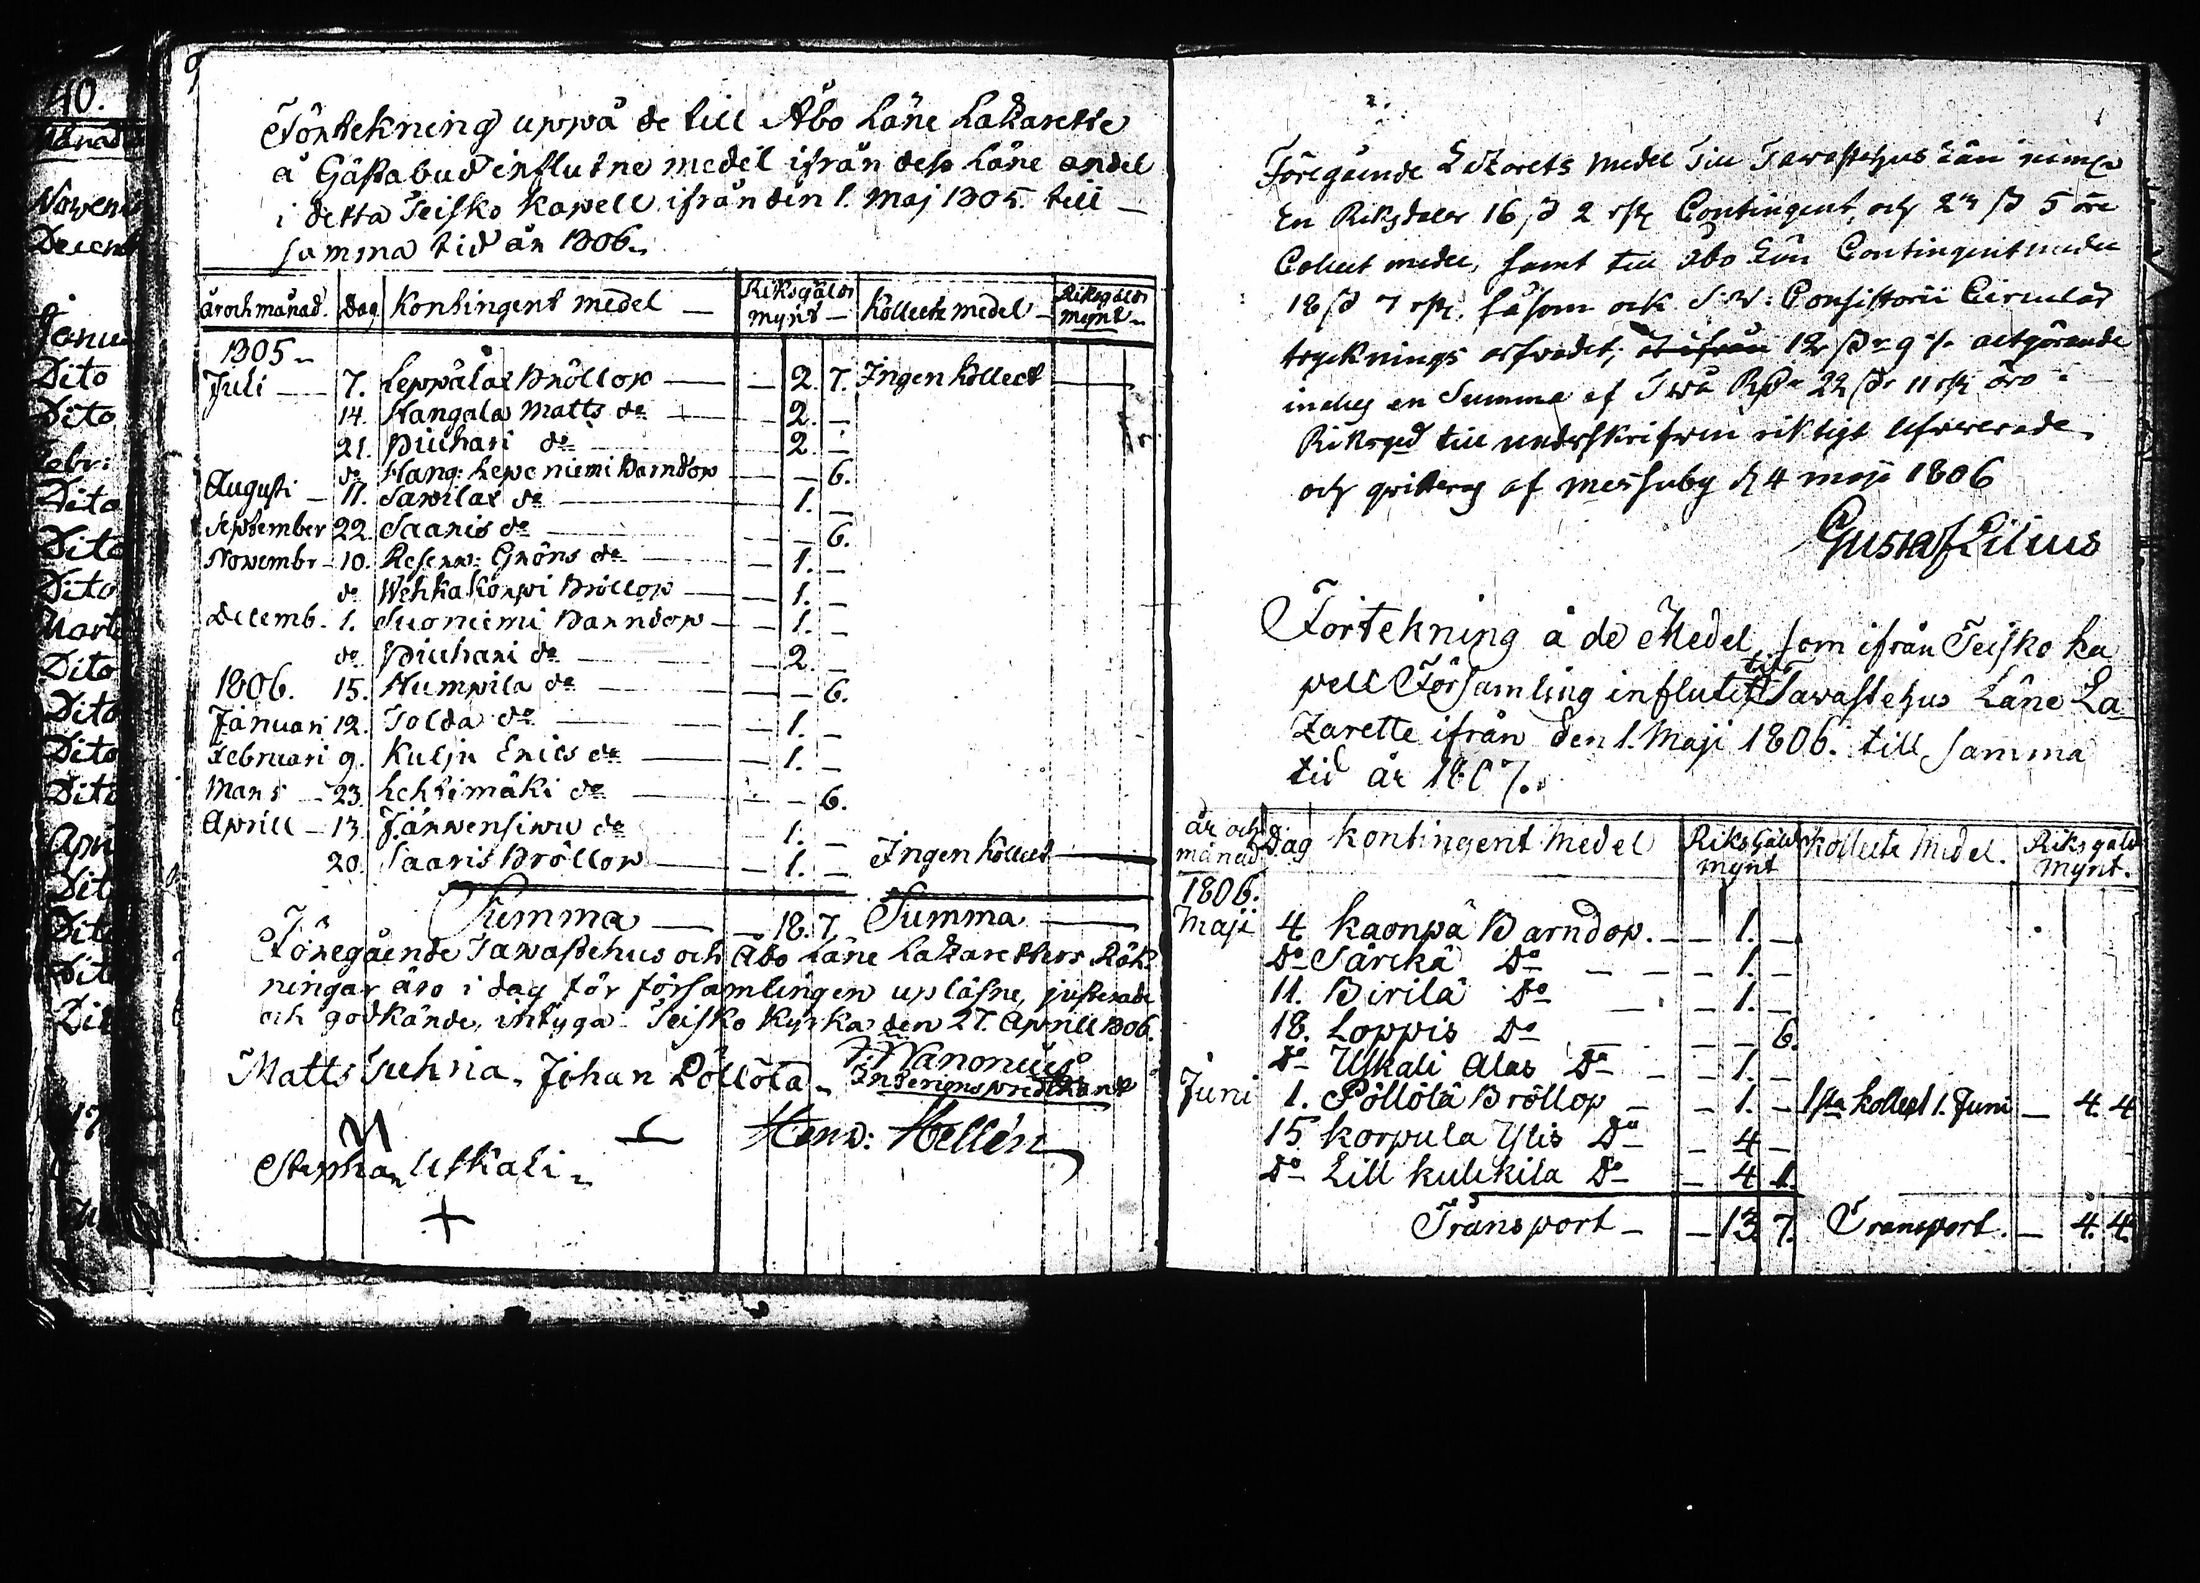 40.
Månad
Novem
Decem
Janu
Dito
Dito
Febr:
Dito
Dito
Dito
Marti
Dito
Dito
Dito
Dito
Apri
Dito
Dito
Dito
9
Förtekning uppå de till Åbo Läne Lazarette
å Gästabud influtne medel ifrån dess Läne andel
i detta Teisko Kapell ifrån den 1. Maj 1805 till
samma tid år 1806.
år och månad. Dag Kontingent medel Riksgälds mynt Kollecte medel Riksgälds mynt
1805
Juli 7. Leppälax Bröllop 2. 7. Ingen Kollect
14. Hangala Matts do 2.
21. Piuhari do 2.
do Hang: Leponiemi Barndop 6.
Augusti 11. Sawilax do 1.
September 22. Saaris do 6.
Novembr 10. Reserv: Gröns do 1.
do Wehkakorpi Bröllop 1.
Decemb. 1. Suoniemi Barndop 1.
do Piuhari do 2.
1806. 15. Humpila do 6.
Januari 12. Tolda do 1.
Februari 9. Kulju Erics do 1.
Mars 23. Lehtimäki do 6.
Aprill 13. Järwensiwu do 1.
20. Saaris Bröllop 1. Ingen Kollect
Summa 18. 7. Summa
Föregående Tawastehus och Åbo Läne Lazaretters Räk-
ningar äro i dag för församlingen upläsne, justerade
och godkände, intyga Teisko Kyrka den 27. Aprill 1806.
Matts Juhria. Johan Pöllölä
Interimspredikant
Henr: Hellén
Stephan Uskali
+
Föregående Lazarets medel till Tawastehus Län
En Riksdaler 16 ß 2 Contingent, och 27 ß 5 öre
Collect medel, samt till Åbo Län Contingent medel
18 ß 7 såsom ock Consistorii Circulär
trycknings arfvodet, 12 ß 9 altgörande
en Summa af Twå 22 ß 11
till underskrifven riktigt lefvererade
och af Messuby d 4 maji 1806
Gustaf Lilius
Förtekning å de Medel, som ifrån Teisko Ka
pell Församling influtit till Tawastehus Läne La
zarette ifrån den 1. Maji 1806. till samma
tid år 1807.
år och månad Dag Kontingent Medel Riksgälds mynt Kollecte Medel. Riksgälds Mynt.
1806.
Maji 4 Kaonpä Barndop. 1.
Do Särckä Do 1.
11. Birilä Do 1.
18. Loppis Do 6.
Do Uskali Alas Do 1.
Juni 1. Pöllölä Bröllop 1. 1sta Kollect 1. Juni 4. 4
15 Korpula Ylis Do 4
Do Lill Kulckila Do 4 1.
Transport 13. 7. Transport. 4. 4.